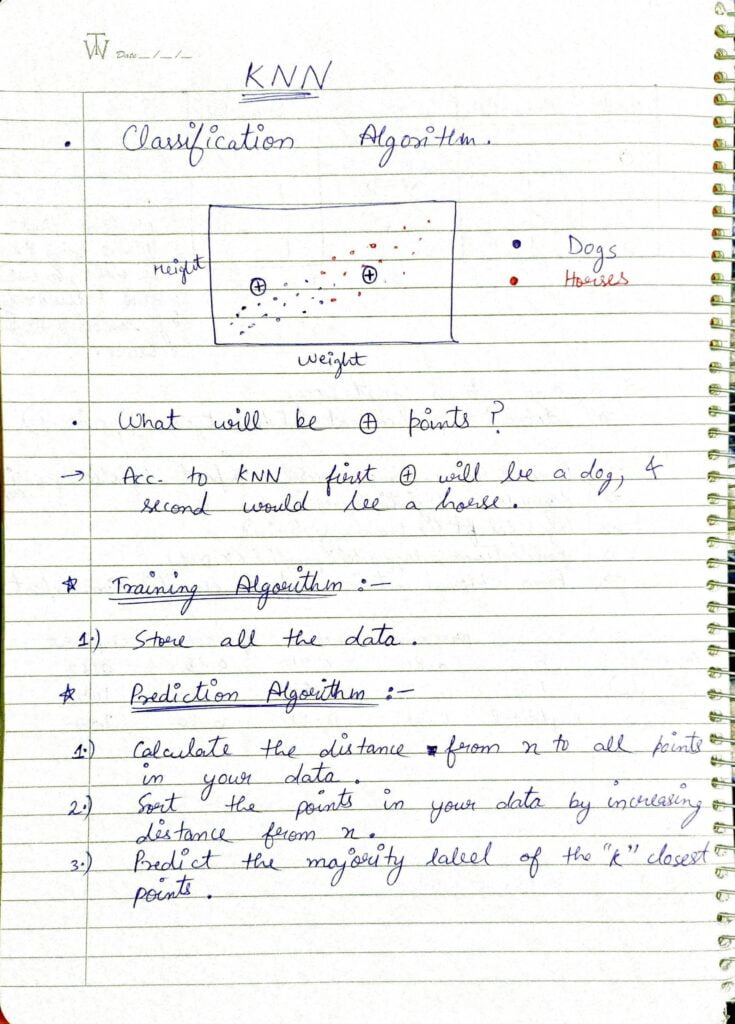 TW Date __/__/__
KNN
• Classification Algorithm.
Height
⊕
⊕
• Dogs
• Horses
Weight
• What will be ⊕ points?
→ Acc. to KNN first ⊕ will be a dog, &
second would be a horse.
* Training Algorithm :-
1.) Store all the data.
* Prediction Algorithm :-
1.) Calculate the distance from x to all points
in your data.
2.) Sort the points in your data by increasing
distance from x.
3.) Predict the majority label of the "k" closest
points.